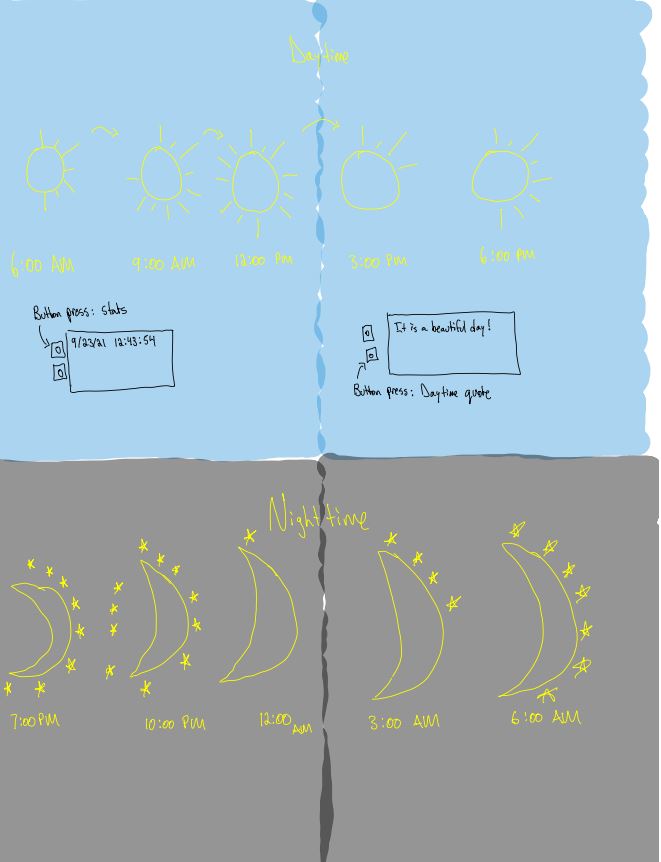 Daytime
6:00 AM
9:00 AM
12:00 PM
3:00 PM
6:00 PM
Button press: stats
9/23/21 12:43:54
It is a beautiful day!
Button press: Daytime quote
Nighttime
7:00 PM
10:00 PM
12:00 AM
3:00 AM
6:00 AM